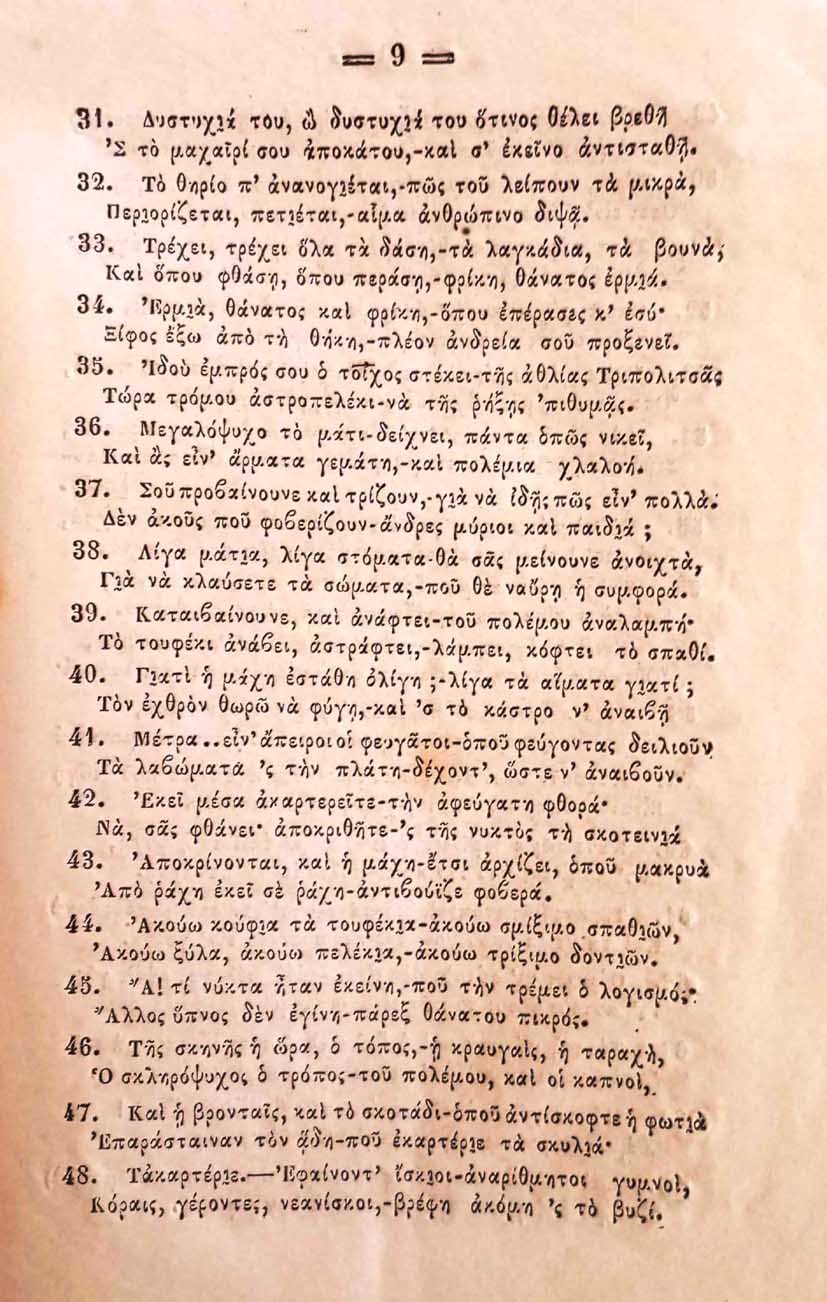 = 9 =
31. Δυστυχιὰ του, ὦ δυστυχιὰ του ὅτινος θέλει βρεθῆ
Ἐ τὸ μαχαῖρί σου ἀποκάτου,-καὶ σ' ἐκεῖνο ἀντισταθῇ.
32. Τὸ θηρίο π' ἀνανογιέται,-πῶς τοῦ λείπουν τὰ μικρὰ,
Περιορίζεται, πετιέται,-αἷμα ἀνθρώπινο διψᾷ.
33. Τρέχει, τρέχει ὅλα τὰ δάση,-τὰ λαγκάδια, τὰ βουνὰ,
Καὶ ὅπου φθάσῃ, ὅπου περάσῃ,-φρίκη, θάνατος ἐρμιά.
34. Ἐρμιὰ, θάνατος καὶ φρίκη,-ὅπου ἐπέρασες κ' ἐσύ·
Ξίφος ἔξω ἀπὸ τὴ θήκη,-πλέον ἀνδρεία σοῦ προξενεῖ.
35. Ἰδοὺ ἐμπρός σου ὁ τοῖχος στέκει-τῆς ἀθλίας Τριπολιτσᾶς
Τώρα τρόμου ἀστροπελέκι-νὰ τῆς ῥήξῃς 'πιθυμᾷς.
36. Μεγαλόψυχο τὸ μάτι-δείχνει, πάντα ὁπῶς νικεῖ,
Καὶ ἂς εἶν' ἄρματα γεμάτη,-καὶ πολέμια χλαλοή.
37. Σοῦ προβαίνουνε καὶ τρίζουν,-γιὰ νὰ ἰδῇς πῶς εἶν' πολλὰ.
Δὲν ἀκοῦς ποῦ φοβερίζουν-ἄνδρες μύριοι καὶ παιδιά ;
38. Λίγα μάτια, λίγα στόματα-θὰ σᾶς μείνουνε ἀνοιχτὰ,
Γιὰ νὰ κλαύσετε τὰ σώματα,-ποῦ θὲ ναὔρῃ ἡ συμφορά.
39. Καταιβαίνουνε, καὶ ἀνάφτει-τοῦ πολέμου ἀναλαμπή·
Τὸ τουφέκι ἀνάβει, ἀστράφτει,-λάμπει, κόφτει τὸ σπαθί.
40. Γιατὶ ἡ μάχη ἐστάθη ὀλίγη ;-λίγα τὰ αἵματα γιατί ;
Τὸν ἐχθρὸν θωρῶ νὰ φύγῃ,-καὶ 'σ τὸ κάστρο ν' ἀναιβῇ
41. Μέτρα..εἶν' ἄπειροι οἱ φευγᾶτοι-ὁποῦ φεύγοντας δειλιοῦν
Τὰ λαβώματα 'ς τὴν πλάτη-δέχοντ', ὥστε ν' ἀναιβοῦν.
42. Ἐκεῖ μέσα ἀκαρτερεῖτε-τὴν ἀφεύγατη φθορά·
Νὰ, σᾶς φθάνει· ἀποκριθῆτε-'ς τῆς νυκτὸς τὴ σκοτεινιά
43. Ἀποκρίνονται, καὶ ἡ μάχη-ἔτσι ἀρχίζει, ὁποῦ μακρυὰ
Ἀπὸ ῥάχη ἐκεῖ σὲ ῥάχη-ἀντιβούϊζε φοβερά.
44. Ἀκούω κούφια τὰ τουφέκια-ἀκούω σμίξιμο σπαθιῶν,
Ἀκούω ξύλα, ἀκούω πελέκια,-ἀκούω τρίξιμο δοντιῶν.
45. Ἂ! τί νύκτα ἦταν ἐκείνη,-ποῦ τὴν τρέμει ὁ λογισμός·
Ἄλλος ὕπνος δὲν ἐγίνη-πάρεξ θάνατου πικρός.
46. Τῆς σκηνῆς ἡ ὥρα, ὁ τόπος,-ᾑ κραυγαὶς, ἡ ταραχὴ,
Ὁ σκληρόψυχος ὁ τρόπος-τοῦ πολέμου, καὶ οἱ καπνοὶ,
47. Καὶ ᾑ βρονταῖς, καὶ τὸ σκοτάδι-ὁποῦ ἀντίσκοφτε ἡ φωτιὰ
Ἐπαράσταιναν τὸν ᾅδη-ποῦ ἐκαρτέριε τὰ σκυλιά·
48. Τἀκαρτέριε.—Ἐφαίνοντ' ἴσκιοι-ἀναρίθμητοι γυμνοὶ,
Κόραις, γέροντες, νεανίσκοι,-βρέφη ἀκόμη 'ς τὸ βυζί.